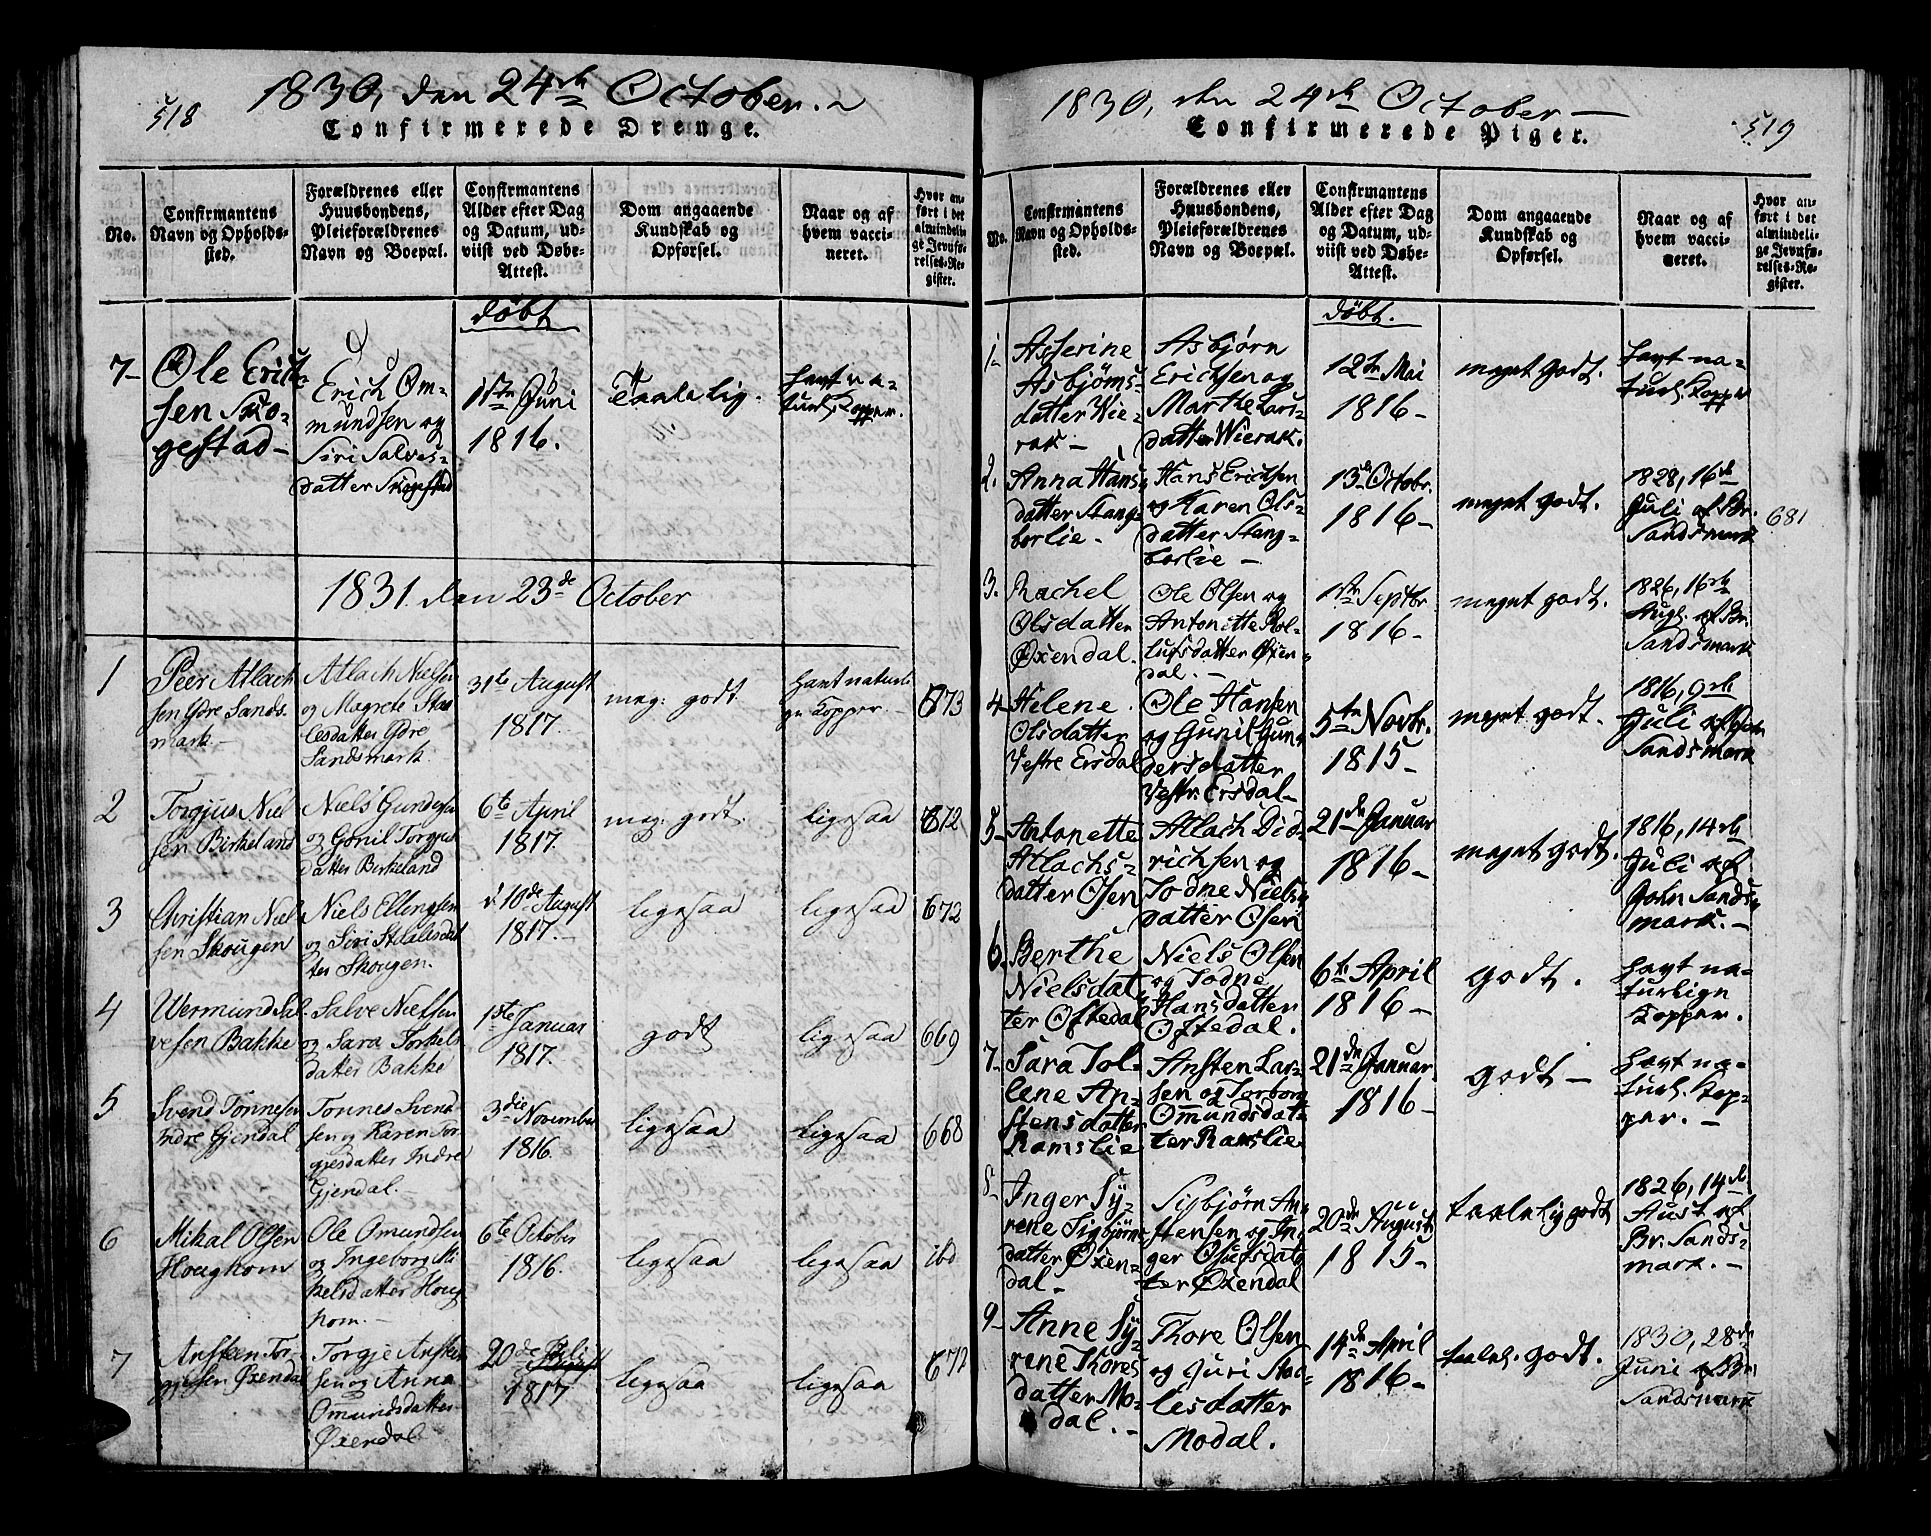 518
1830, den 24de October.
Confirmerede Drenge.
No.
Confirmantens
Navn og Opholds-
sted.
Forældrenes eller
Huusbondens,
Pleieforældrenes
Navn og Boepæl.
Confirmantens
Alder efter Dag
og Datum, ud-
viist ved Døbe-
Attest.
Dom angaaende
Kundskab og
Opførsel.
Naar og af
hvem vacci-
neret.
Hvor an-
ført i det
almindeli-
ge Jevnfø-
relses-Re-
gister.
døbt
7-
Ole Erich-
sen Sko-
gestad-
Erich Om-
mundsen og
Siri Salves-
datter Skogestad
1ste Juni
1816.
Taalelig.
havt na-
turl. Kopper.
1831. den 23de October
1
Peer Atlach
sen Ydre Sands-
mark.-
Atlach Nielsen
og Magrete Sta-
lesdatter Ydre
Sandsmark.
31te August
1817.
meg: godt
havt naturli
ge Kopper.
673
2
Torgjus Niel
sen Birkeland
Niels Gundersen
og Gonil Torgjus
datter Birkeland
6te April
1817.
meg: godt.
ligesaa
672
3
Christian Niel
sen Skougen
Niels Ellingsen
og Siri Stdalesdat
ter Skougen.
10de August
1817.-
ligesaa
ligesaa
672
4
Wermund Sal-
vesen Bakke
Salve Nielsen
og Sara Torkels
datter Bakke
1ste Januar
1817.
godt
ligesaa
669
5
Svend Tønnesen
Indre Gjendal
Tønnes Svend
sen og Karen Tor-
gjesdatter Indre
Gjendal.
3die November
1816.
ligesaa
ligesaa
668
6
Mikal Olsen
Houghom
Ole Omundsen
og Ingeborg Mi
kelsdatter Houg
hom.-
6te October
1816.
ligesaa
ligesaa
ibd
7
Ansteen Tor-
gjesen Øxendal
Torgje Ansten
sen og Anna
Omundsdatter
Øxendal
20de
1817
ligesaa
ligesaa
672
519
1830, den 24de October
Confirmerede Piger.
No.
Confirmantens
Navn og Opholds-
sted.
Forældrenes eller
Huusbondens,
Pleieforældrenes
Navn og Boepæl.
Confirmantens
Alder efter Dag
og Datum, ud-
viist ved Døbe-
Attest.
Dom angaaende
Kundskab og
Opførsel.
Naar og af
hvem vacci-
neret.
Hvor an-
ført i det
almindeli-
ge Jevnfø-
relses-Re-
gister.
døbt.
1-
Asserine
Asbjørns-
datter Wie-
rak-
Asbjørn
Erichsen og
Marthe Lars-
datter Wierak.
12te Mai
1816-
meget godt.
havt na-
turl. Kopper
2.
Anna Hans-
datter Stang-
borlie.-
Hans Erichsen
og Karen Ols-
datter Stang-
borlie-
13de Octobr.
1816-
meget godt.
1828, 16de
Juli af Br.
Sandsmark
681
3.
Rachel
Olsdatter
Øxendal.
Ole Olsen og
Antonette Rol-
lufsdatter Øxen-
dal.-
1ste Septbr
1816-
meget godt.
1826, 16de
Aug. af Br.
Sandsmark
4-
Helene
Olsdatter
Vestre Ersdal
Ole Hansen
og Gunil Gun-
dersdatter
Vestr. Ersdal-
5te Novbr.
1815-
meget godt.
1816, 9de
Juli af
Sandsmark
5-
Antonette
Atlachs-
datter Osen
Atlach Did-
richsen og
Todne Niels-
datter Osen
21de Januar
1816-
meget godt.
1816, 14de
Juli af
John Sands-
mark.-
6.
Berthe
Nielsdat-
ter Oftedal
Niels Olsen
og Todne
Hansdatter
Oftedal.
6te April
1816-
godt.
havt na-
turlige
Kopper.
7-
Sara Tol-
lene An-
stensdatter
Ramslie
Ansten Lar-
sen og Torbor
Omundsdat-
ter Ramslie
21de Januar.
1816-
godt-
havt na-
turl. Kop-
per.-
8-
Inger Sÿ-
rene Sigbjørns-
datter Øxen-
dal-
Sigbjørn An-
stensen og In-
ger Osufsdat-
ter Øxendal
20de August
1815-
taalelig godt
1826, 14de
Aust af
Br. Sands-
mark.-
9-
Anne Sÿ-
rene Thores
datter Mo-
dal.-
Thore Olsen
og Juri Staa-
lesdatter
Modal.
14de April
1816-
taalel. godt.
1830, 28de
Juni af Br.
Sandsmark